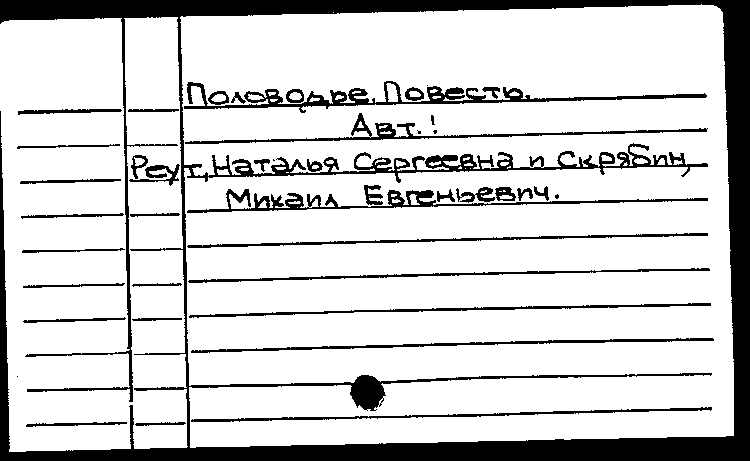 Половодье. Повесть.
Авт.!
Реут, Наталья Сергеевна и Скрябин,
Михаил Евгеньевич.